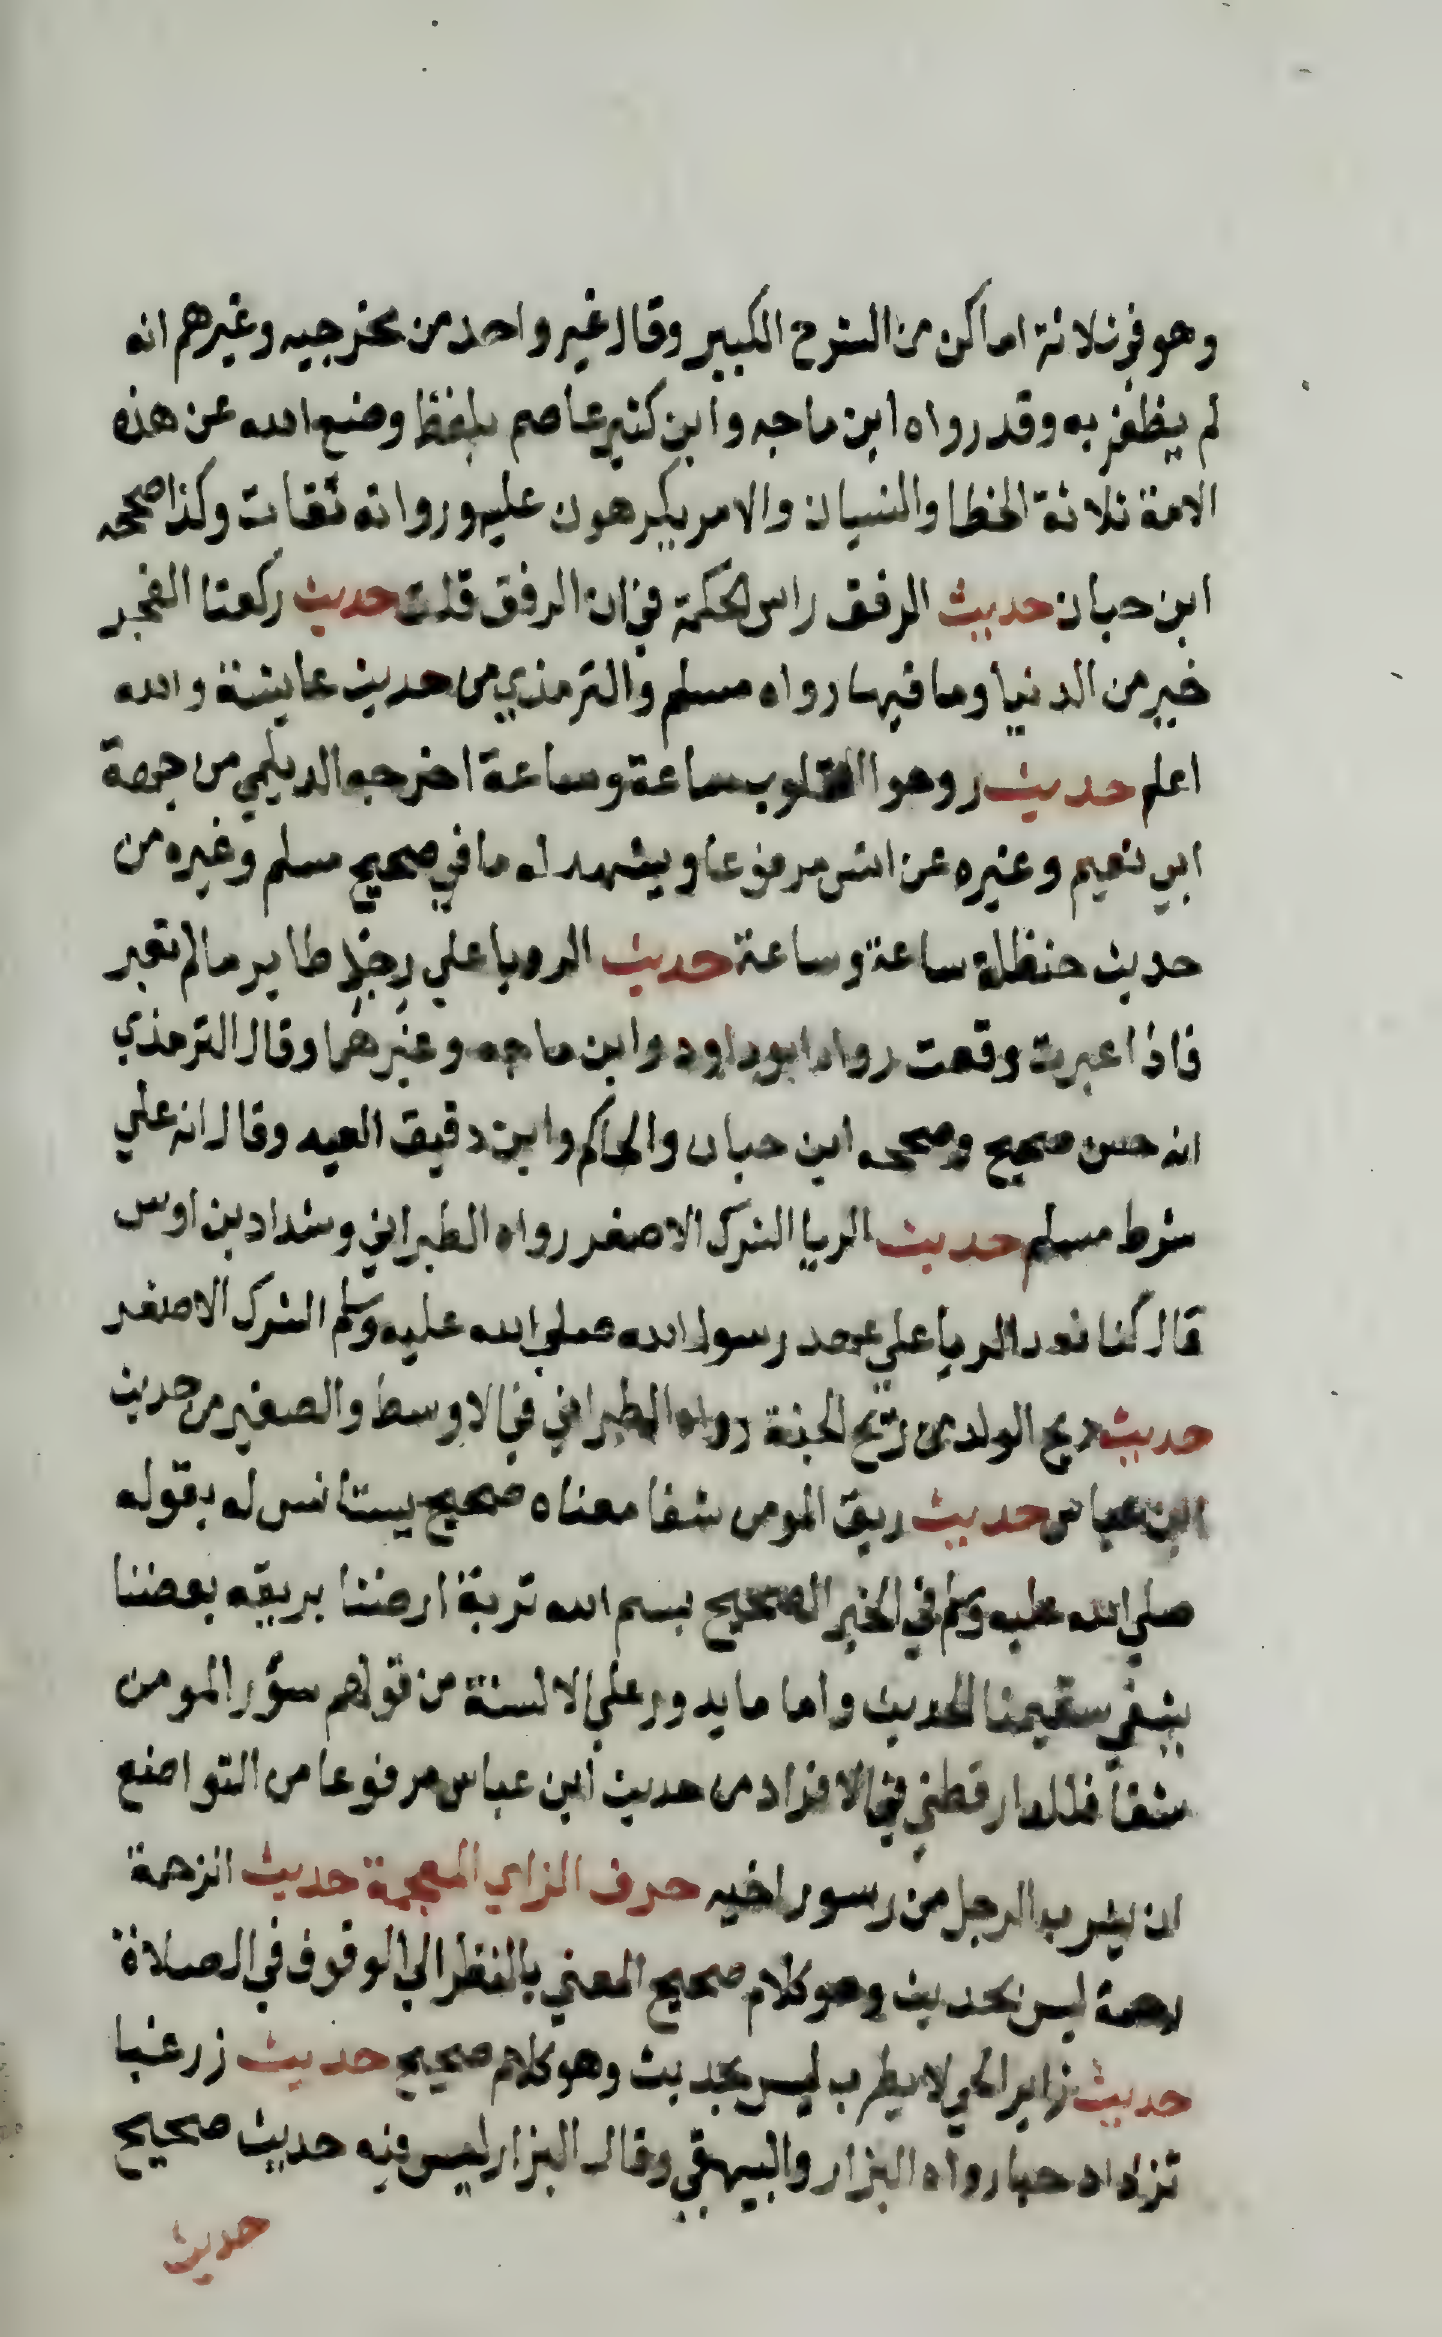 وهو في ثلاثة اماكن من الشرح الكبير وقال غير واحد من مخرجيه وغيرهم انه
لم يظفر به وقد رواه ابن ماجه وابن كثير عاصم بلفظ وضع الله عن هذه
الامة ثلاثة الخطا والنسيان والامر يكرهون عليه ورواته ثقات وكذا صححه
ابن حبان حديث الرفق راس الحكمة في ان الرفق قلت حديث ركعتا الفجر
خير من الدنيا وما فيها رواه مسلم والترمذي من حديث عايشة والله
اعلم حديث روحوا القلوب ساعة وساعة اخرجه الديلمي من جهة
ابي نعيم وغيره عن انس مرفوعا ويشهد له ما في صحيح مسلم وغيره من
حديث حنظلة ساعة وساعة حديث الرويا علي رجل طاير مالم تعبر
فاذا عبرت وقعت رواه ابوداود وابن ماجه وغيرهما وقال الترمذي
انه حسن صحيح وصححه ابن حبان والحاكم وابن دقيق العيه وقال انه علي
شرط مسلم حديث الريا الشرك الاصغر رواه الطبراني وشداد بن اوس
قال كنا نعد الريا علي عهد رسول الله صلي الله عليه وسلم الشرك الاصغر
حديث ريح الولد من ريح الجنة رواه الطبراني في الاوسط والصغير من حديث
ابن عباس حديث ريق المومن شفا معناه صحيح يستانس له بقوله
صلي الله عليه وسلم في الخبر الصحيح بسم الله تربة ارضنا بريقه بعضنا
يشفي سقيمنا الحديث واما ما يدور علي الالسنة من قولهم سؤر المومن
شفا فللدارقطني في الافراد من حديث ابن عباس مرفوعا من التواضع
ان يشرب الرجل من رسور اخيه حرف الزاي المعجمة حديث الزحمة
رحمة ليس بحديث وهو كلام صحيح المعني بالنظر الي الوقوف في الصلاة
حديث زاير الحي لا يطرب ليس بحديث وهو كلام صحيح حديث زر غبا
تزداد حبا رواه البزار والبيهقي وقال البزار ليس فيه حديث صحيح
حديث